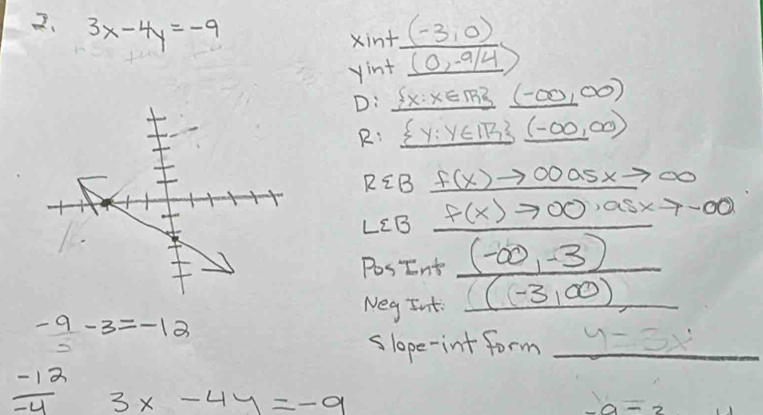 2. 3x-4y=-9
xint (-3,0)
yint (0,-9/4)
D: {x:x∈ℝ} (-∞,∞)
R: {y:y∈ℝ} (-∞,∞)
REB f(x)→∞ as x→∞
LEB f(x)→∞, as x→-∞
Pos Int (-∞,-3)
Neg Int: ((-3,∞)
slope-int form y=3x
-9-3=-12
-12/-4 3x-4y=-9